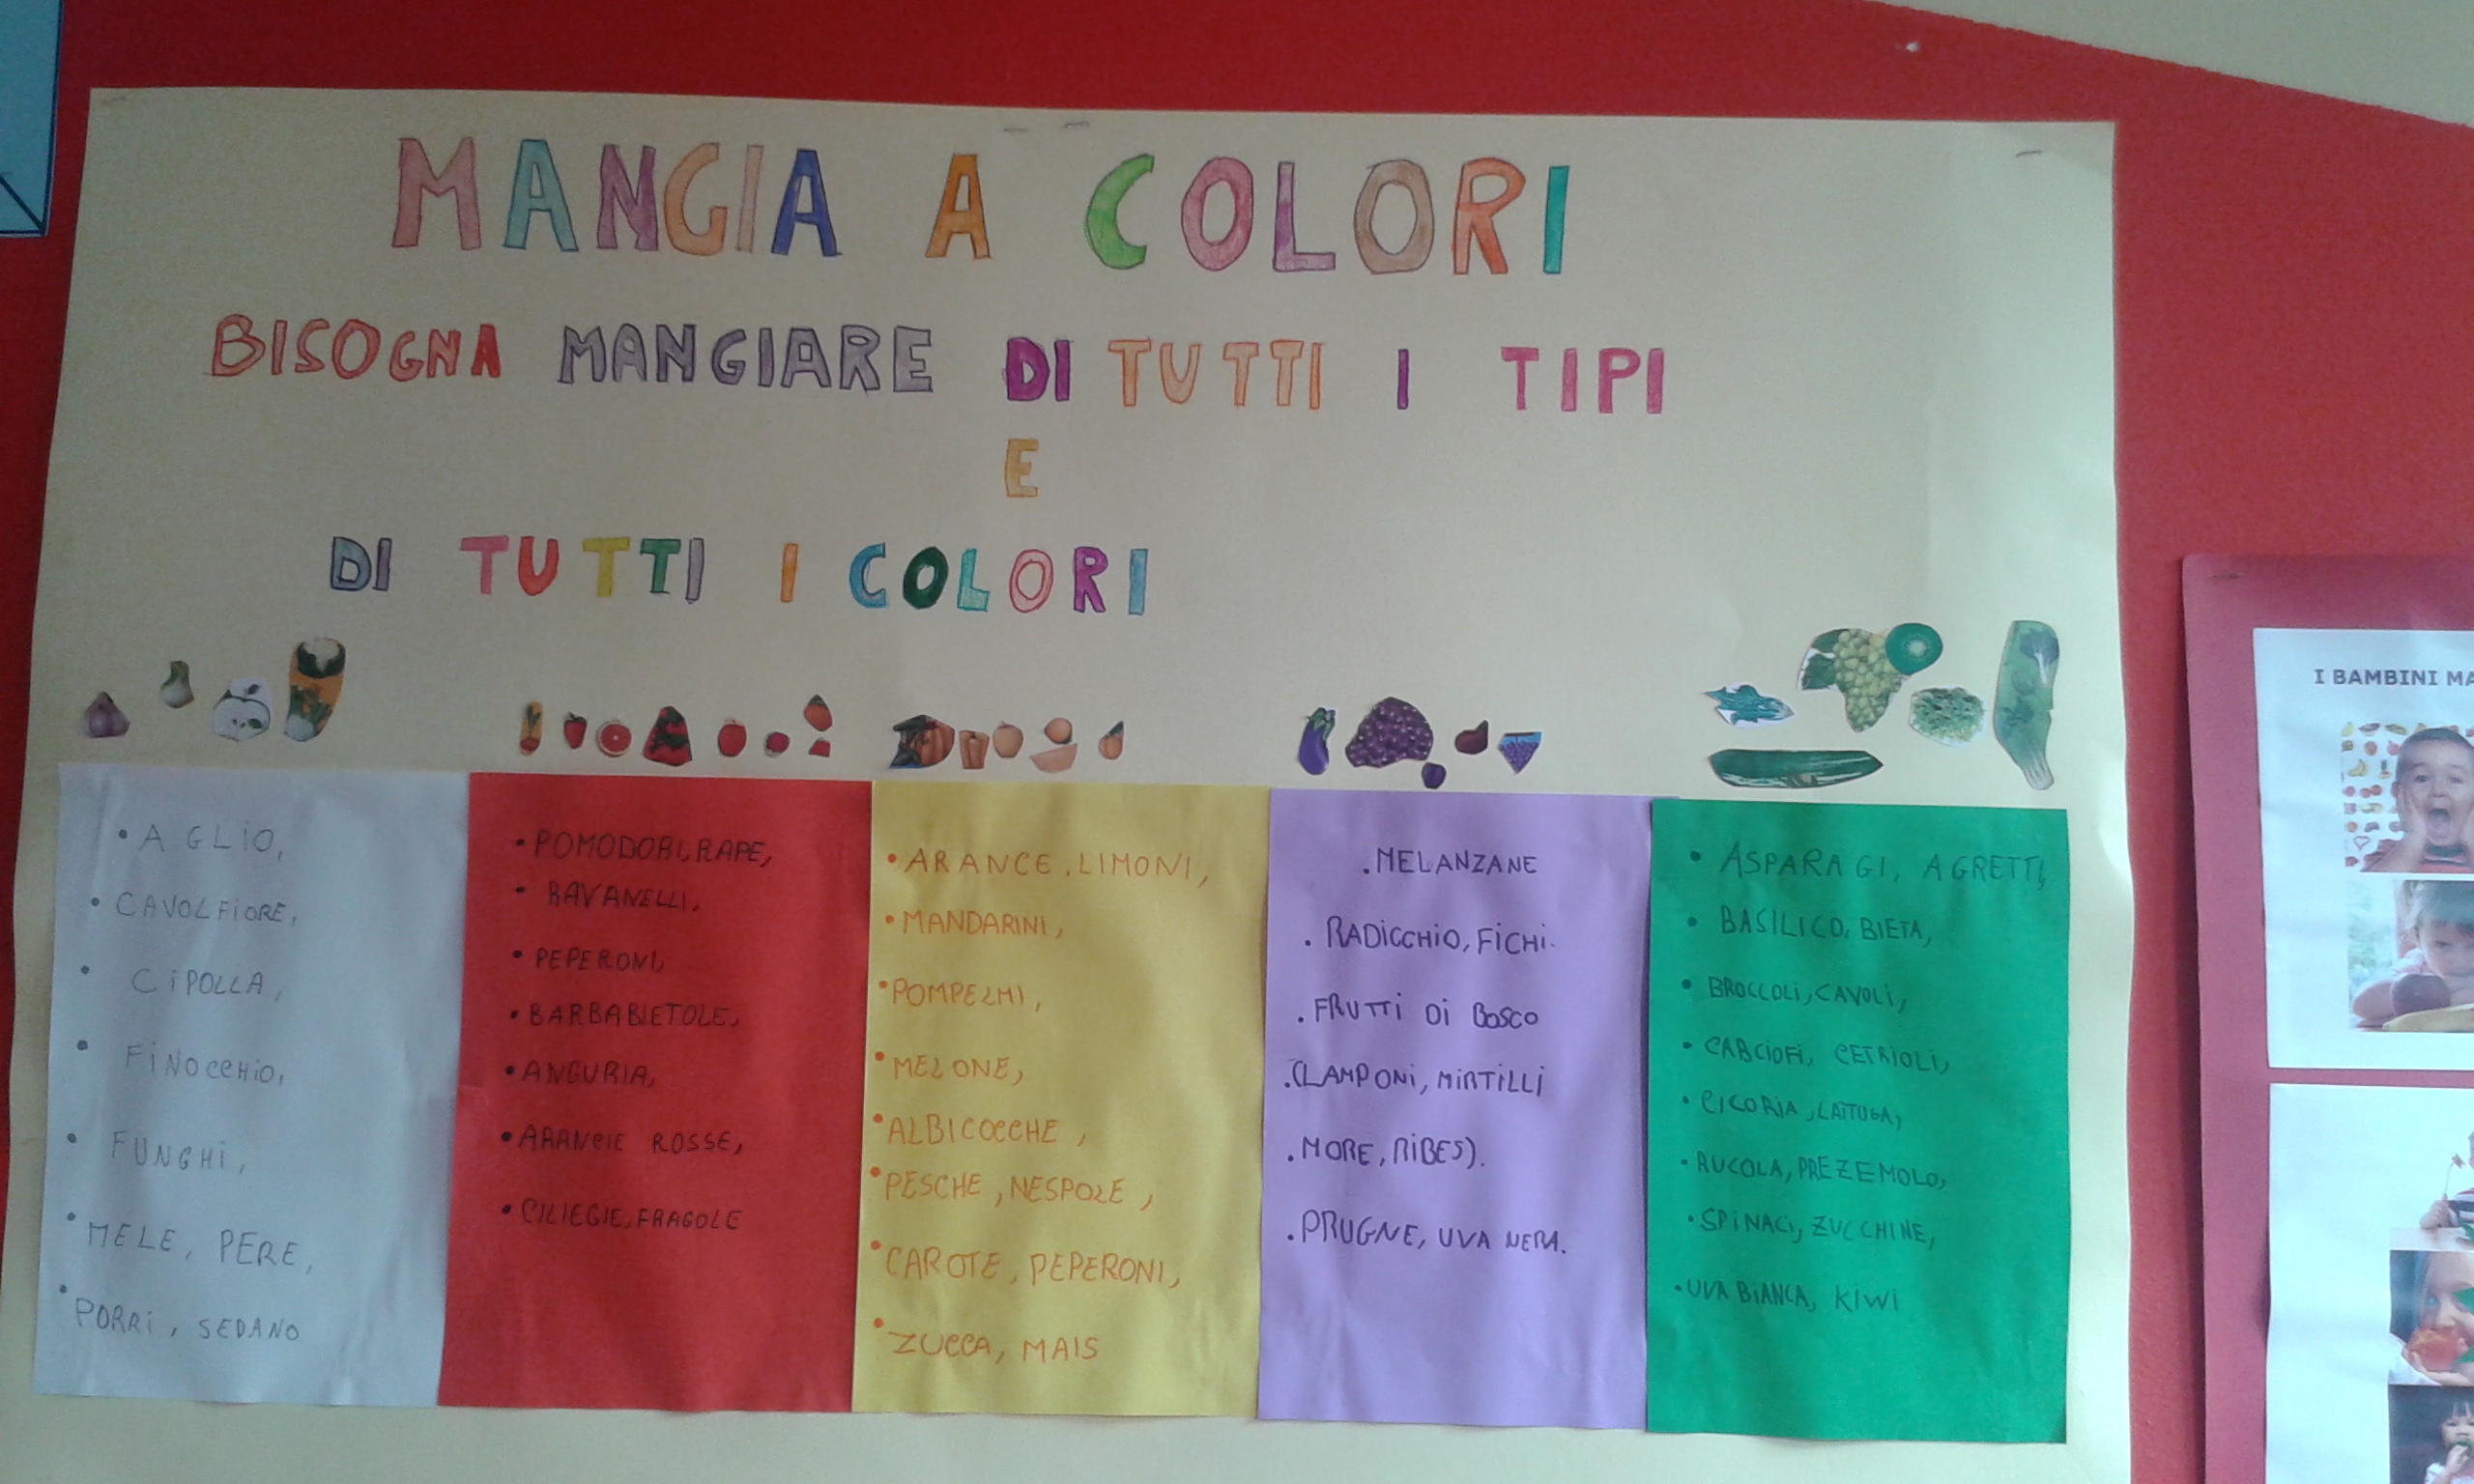 MANGIA A COLORI
BISOGNA MANGIARE DI TUTTI I TIPI
E
DI TUTTI I COLORI
• AGLIO,
• CAVOLFIORE,
• CIPOLLA,
• FINOCCHIO,
• FUNGHI,
• MELE, PERE,
• PORRI, SEDANO
• POMODORI, RAPE,
• RAVANELLI,
• PEPERONI,
• BARBABIETOLE,
• ANGURIA,
• ARANCIE ROSSE,
• CILIEGIE, FRAGOLE
• ARANCE, LIMONI,
• MANDARINI,
• POMPELMI,
• MELONE,
• ALBICOCCHE,
• PESCHE, NESPOLE,
• CAROTE, PEPERONI,
• ZUCCA, MAIS
. MELANZANE
. RADICCHIO, FICHI.
. FRUTTI DI BOSCO
. (LAMPONI, MIRTILLI
. MORE, RIBES).
. PRUGNE, UVA NERA.
• ASPARAGI, AGRETTI,
• BASILICO, BIETA,
• BROCCOLI, CAVOLI,
• CARCIOFI, CETRIOLI,
• CICORIA, LATTUGA,
• RUCOLA, PREZEMOLO,
• SPINACI, ZUCCHINE,
• UVA BIANCA, KIWI
I BAMBINI MA